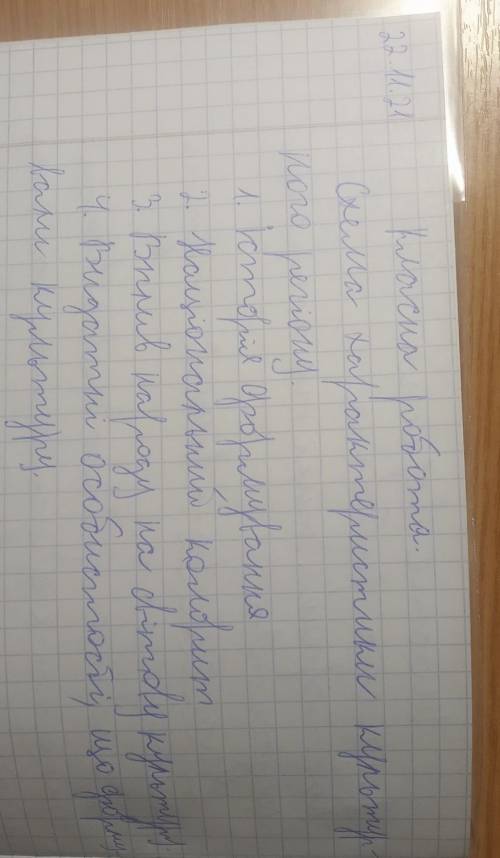 22.11.21
Класна робота.
Схема характеристики культур-
ного регіону.
1. Історія формування
2. Національний колорит
3. Вплив народу на світову культуру.
4. Видатні особистості, що форму-
вали культуру.